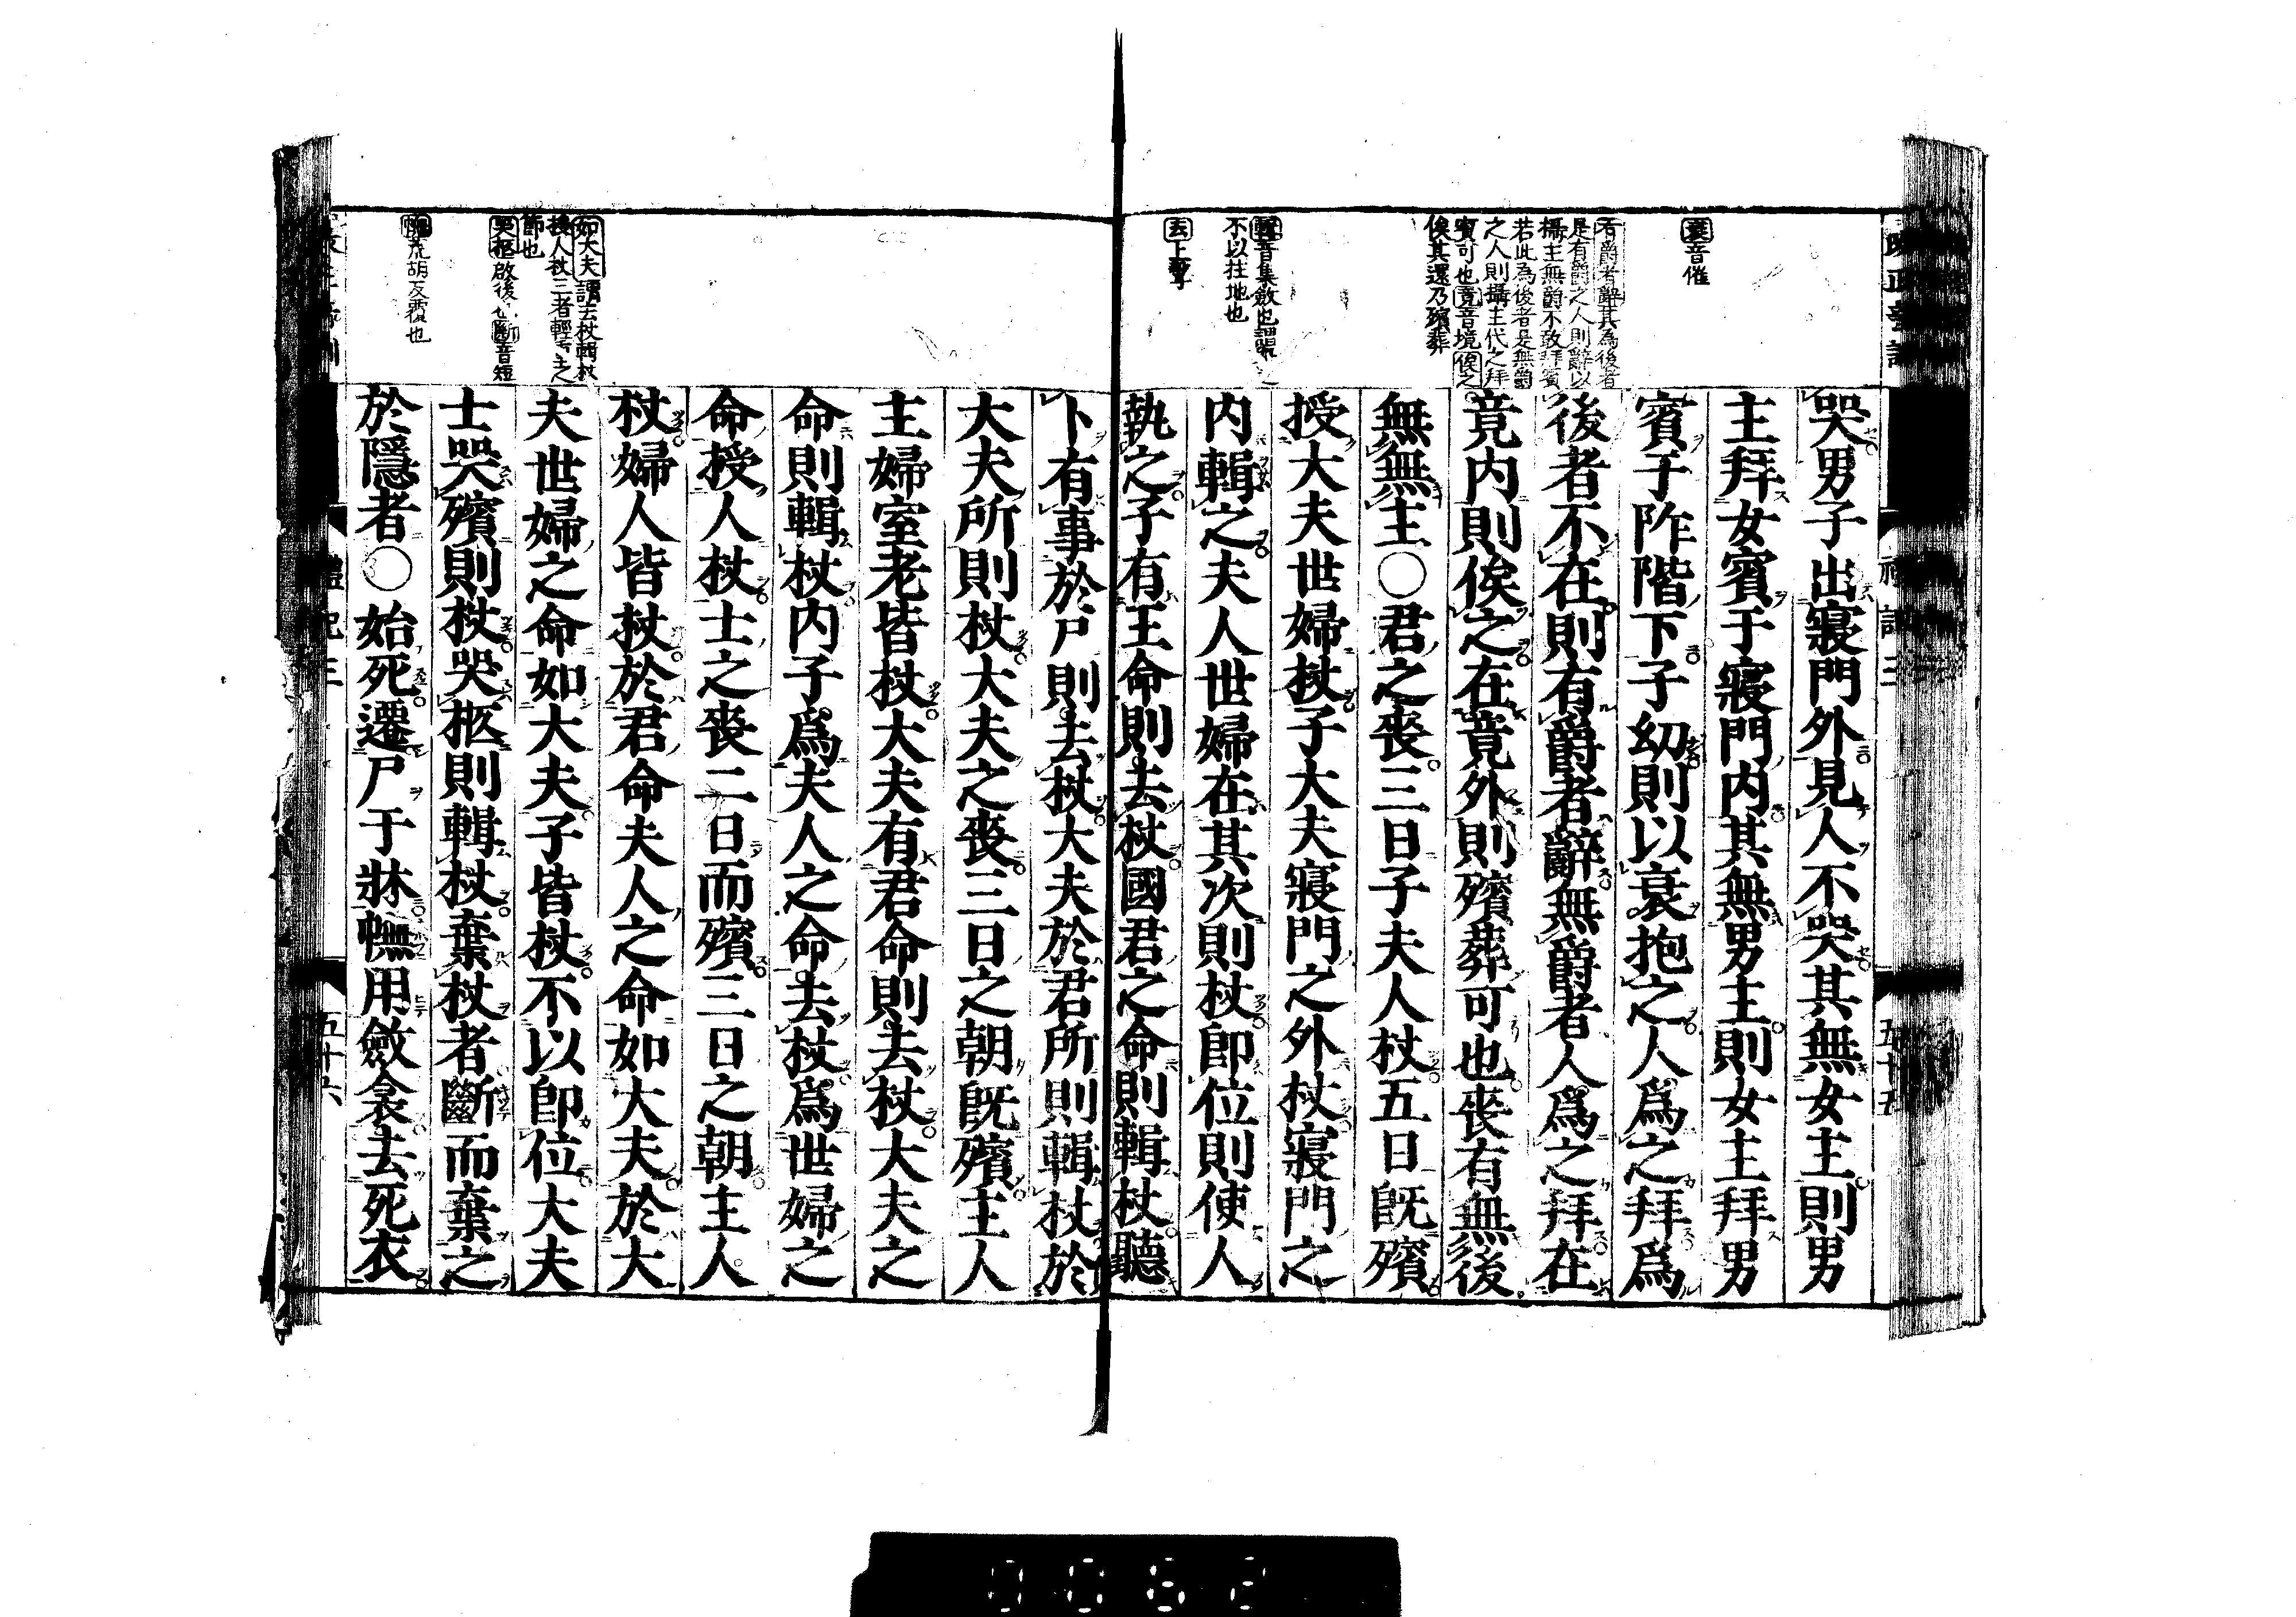 哭男子出寢門外見人不哭其無女主則男
主拜女賓于寢門內其無男主則女主拜男
賓于阼階下子幼則以衰抱之人爲之拜爲
後者不在則有爵者辭無爵者人爲之拜在
竟內則俟之在竟外則殯葬可也喪有無後
無無主〇君之喪三日子夫人杖五日旣殯
授大夫世婦杖子大夫寢門之外杖寢門之
內輯之夫人世婦在其次則杖卽位則使人
執之子有王命則去杖國君之命則輯杖聽
卜有事於尸則去杖大夫於君所則輯杖於
大夫所則杖大夫之喪三日之朝旣殯主人
主婦室老皆杖大夫有君命則去杖大夫之
命則輯杖內子爲夫人之命去杖爲世婦之
命授人杖士之喪二日而殯三日之朝主人
杖婦人皆杖於君命夫人之命如大夫於大
夫世婦之命如大夫子皆杖不以卽位大夫
士哭殯則杖哭柩則輯杖棄杖者斷而棄之
於隱者〇始死遷尸于牀幠用斂衾去死衣
衰音催
有爵者辭其為後者
是有爵之人則辭以
攝主無爵不敢拜賓
若此為後者是無爵
之人則攝主代之拜
賓可也竟音境俟之
俟其還乃殯葬
輯音集斂也謂舉之
不以拄地也
去上聲
如大夫謂去杖輯杖
授人杖三者輕重之
節也
哭柩啟後也斷音短
幠荒胡反覆也
禮記三
五十五
禮記三
五十六